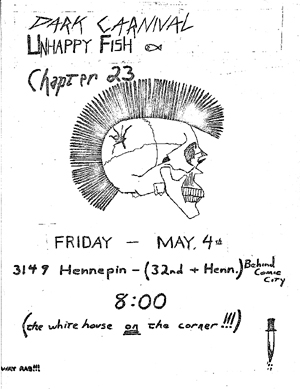 DARK CARNIVAL
UNHAPPY FISH
Chapter 23
FRIDAY — MAY, 4th
3149 Hennepin - (32nd + Henn.) Behind Comic City
8:00
(the white house on the corner!!!)
WAY RAD!!!